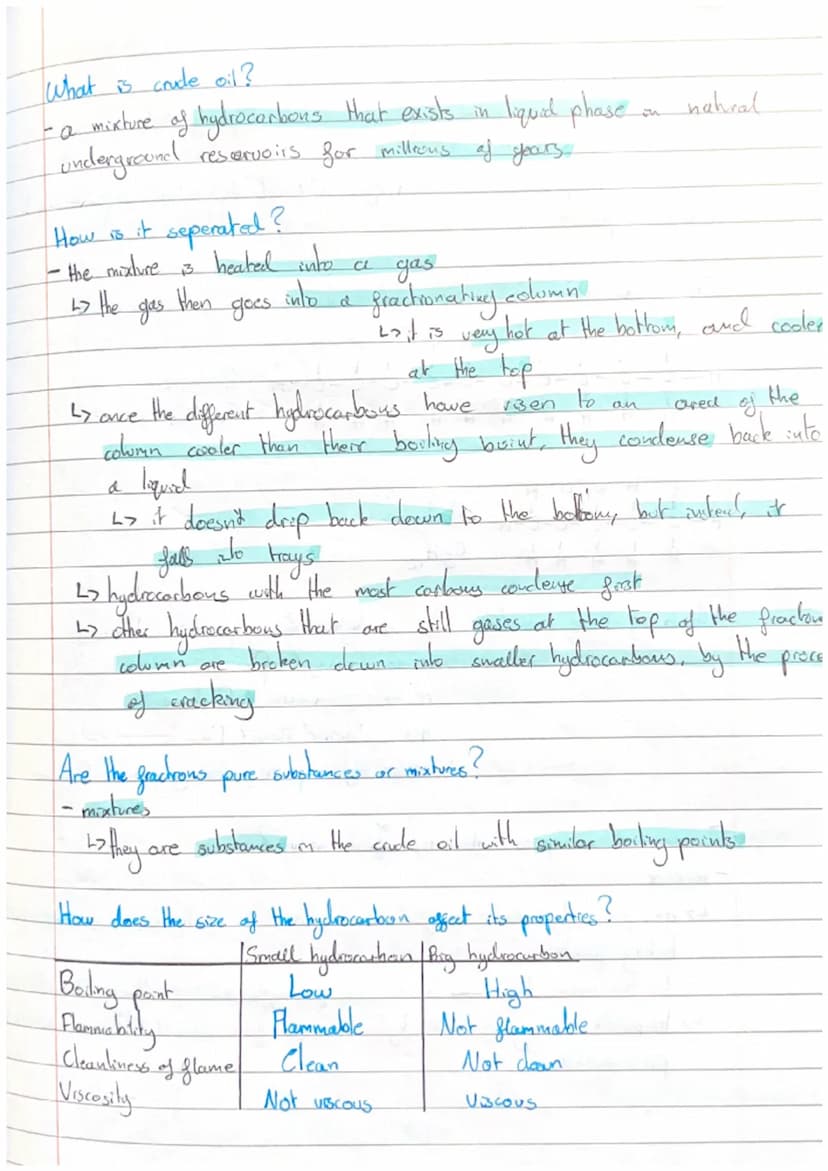 What is crude oil?
- a mixture of hydrocarbons that exists in liquid phase in natural
underground reservoirs for millions of years
How is it seperated?
- the mixture is heated into a gas
↳ the gas then goes into a fractionating column
↳ it is very hot at the bottom, and cooler
at the top
↳ once the different hydrocarbons have risen to an area of the
column cooler than their boiling point, they condense back into
a liquid
↳ it doesn't drip back down to the bottom, but instead, it
falls into trays
↳ hydrocarbons with the most carbons condense first
↳ other hydrocarbons that are still gases at the top of the
column are broken down into smaller hydrocarbons, by the
of cracking
Are the fractions pure substances or mixtures?
- mixtures
↳ they are substances in the crude oil with similar boiling points
How does the size of the hydrocarbon affect its properties?
Small hydrocarbon | Big hydrocarbon
Boiling point Low High
Flammability Flammable Not flammable
Cleanliness of flame Clean Not clean
Viscosity Not viscous Viscous